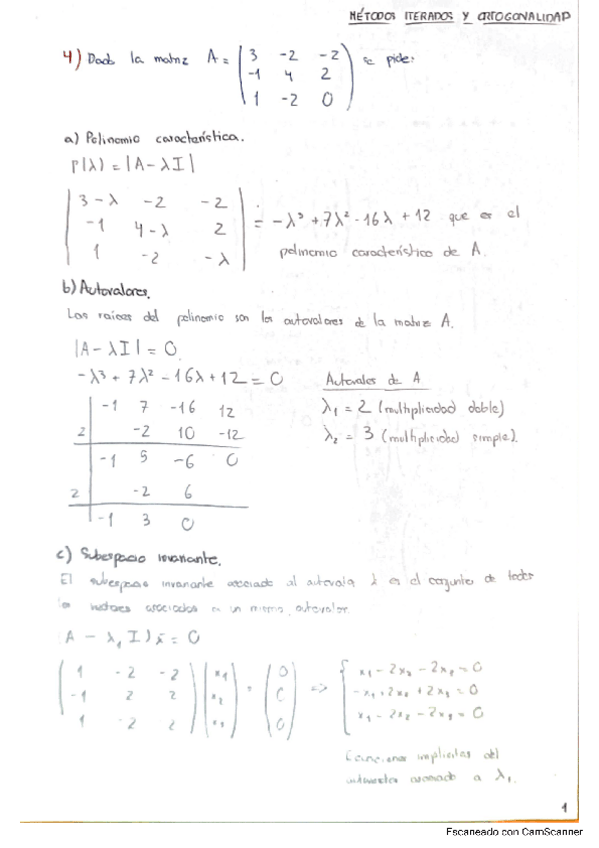 MÉTODOS ITERADOS Y ORTOGONALIDAD
4) Dada la matriz A = ( 3 -2 -2 ) se pide:
( -1 4 2 )
( 1 -2 0 )
a) Polinomio característica.
P(λ) = |A - λI|
| 3-λ -2 -2 |
| -1 4-λ 2 | = -λ³ + 7λ² - 16λ + 12 que es el
| 1 -2 -λ | polinomio característico de A.
b) Autovalores.
Las raíces del polinomio son los autovalores de la matriz A.
|A - λI| = 0
-λ³ + 7λ² - 16λ + 12 = 0
-1 7 -16 12
2 -2 10 -12
-1 5 -6 0
2 -2 6
-1 3 0
Autovales de A
λ₁ = 2 (multiplicidad doble)
λ₂ = 3 (multiplicidad simple).
c) Subespacio invariante.
El subespacio invariante asociado al λ es el conjunto de todos
los vectores asociados a un mismo autovalor.
(A - λ₁I) x̄ = 0
( 1 -2 -2 ) ( x₁ ) ( 0 ) x₁ - 2x₂ - 2x₃ = 0
( -1 2 2 ) ( x₂ ) = ( 0 ) => -x₁ + 2x₂ + 2x₃ = 0
( 1 -2 2 ) ( x₃ ) ( 0 ) x₁ - 2x₂ - 2x₃ = 0
Ecuaciones implícitas del
asociado a λ₁.
1
Escaneado con CamScanner